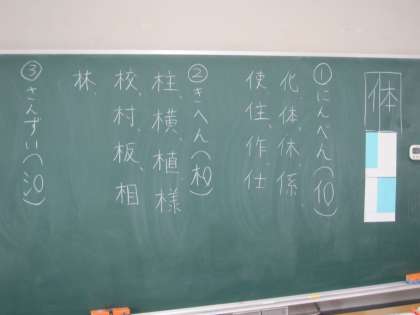 体
①にんべん(イ0)
化、体、休、係、
使、住、作、仕
②きへん(木0)
柱、横、植、様
校、村、板、相
林、
③さんずい(氵0)